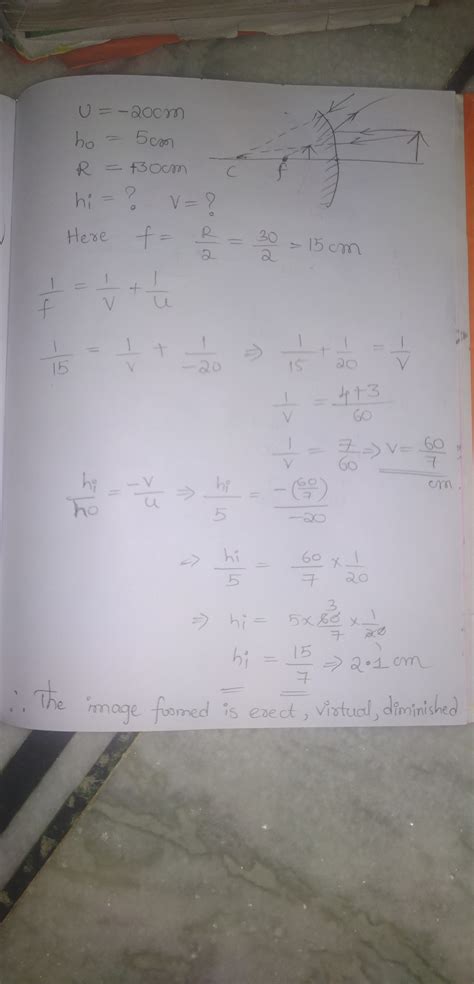 U = -20cm
ho = 5cm
R = +30cm
hi = ? V = ?
C f
Here f = R/2 = 30/2 = 15cm
1/f = 1/V + 1/u
1/15 = 1/V + 1/-20 ⇒ 1/15 + 1/20 = 1/V
1/V = 4+3/60
1/V = 7/60 ⇒ V = 60/7 cm
hi/ho = -V/u ⇒ hi/5 = -(60/7)/-20
⇒ hi/5 = 60/7 × 1/20
⇒ hi = 5 × 60/7 × 1/20
3
1
hi = 15/7 ⇒ 2.1 cm
∴ The image formed is erect, virtual, diminished